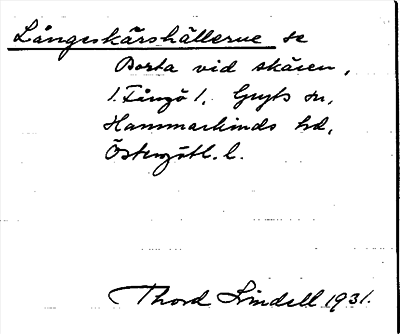 Långeskärshällerne se
Borta vid skären,
1. Fångö 1, Gryts sn,
Hammarkinds hd,
Östergötl. l.
Thord Lindell 1931.